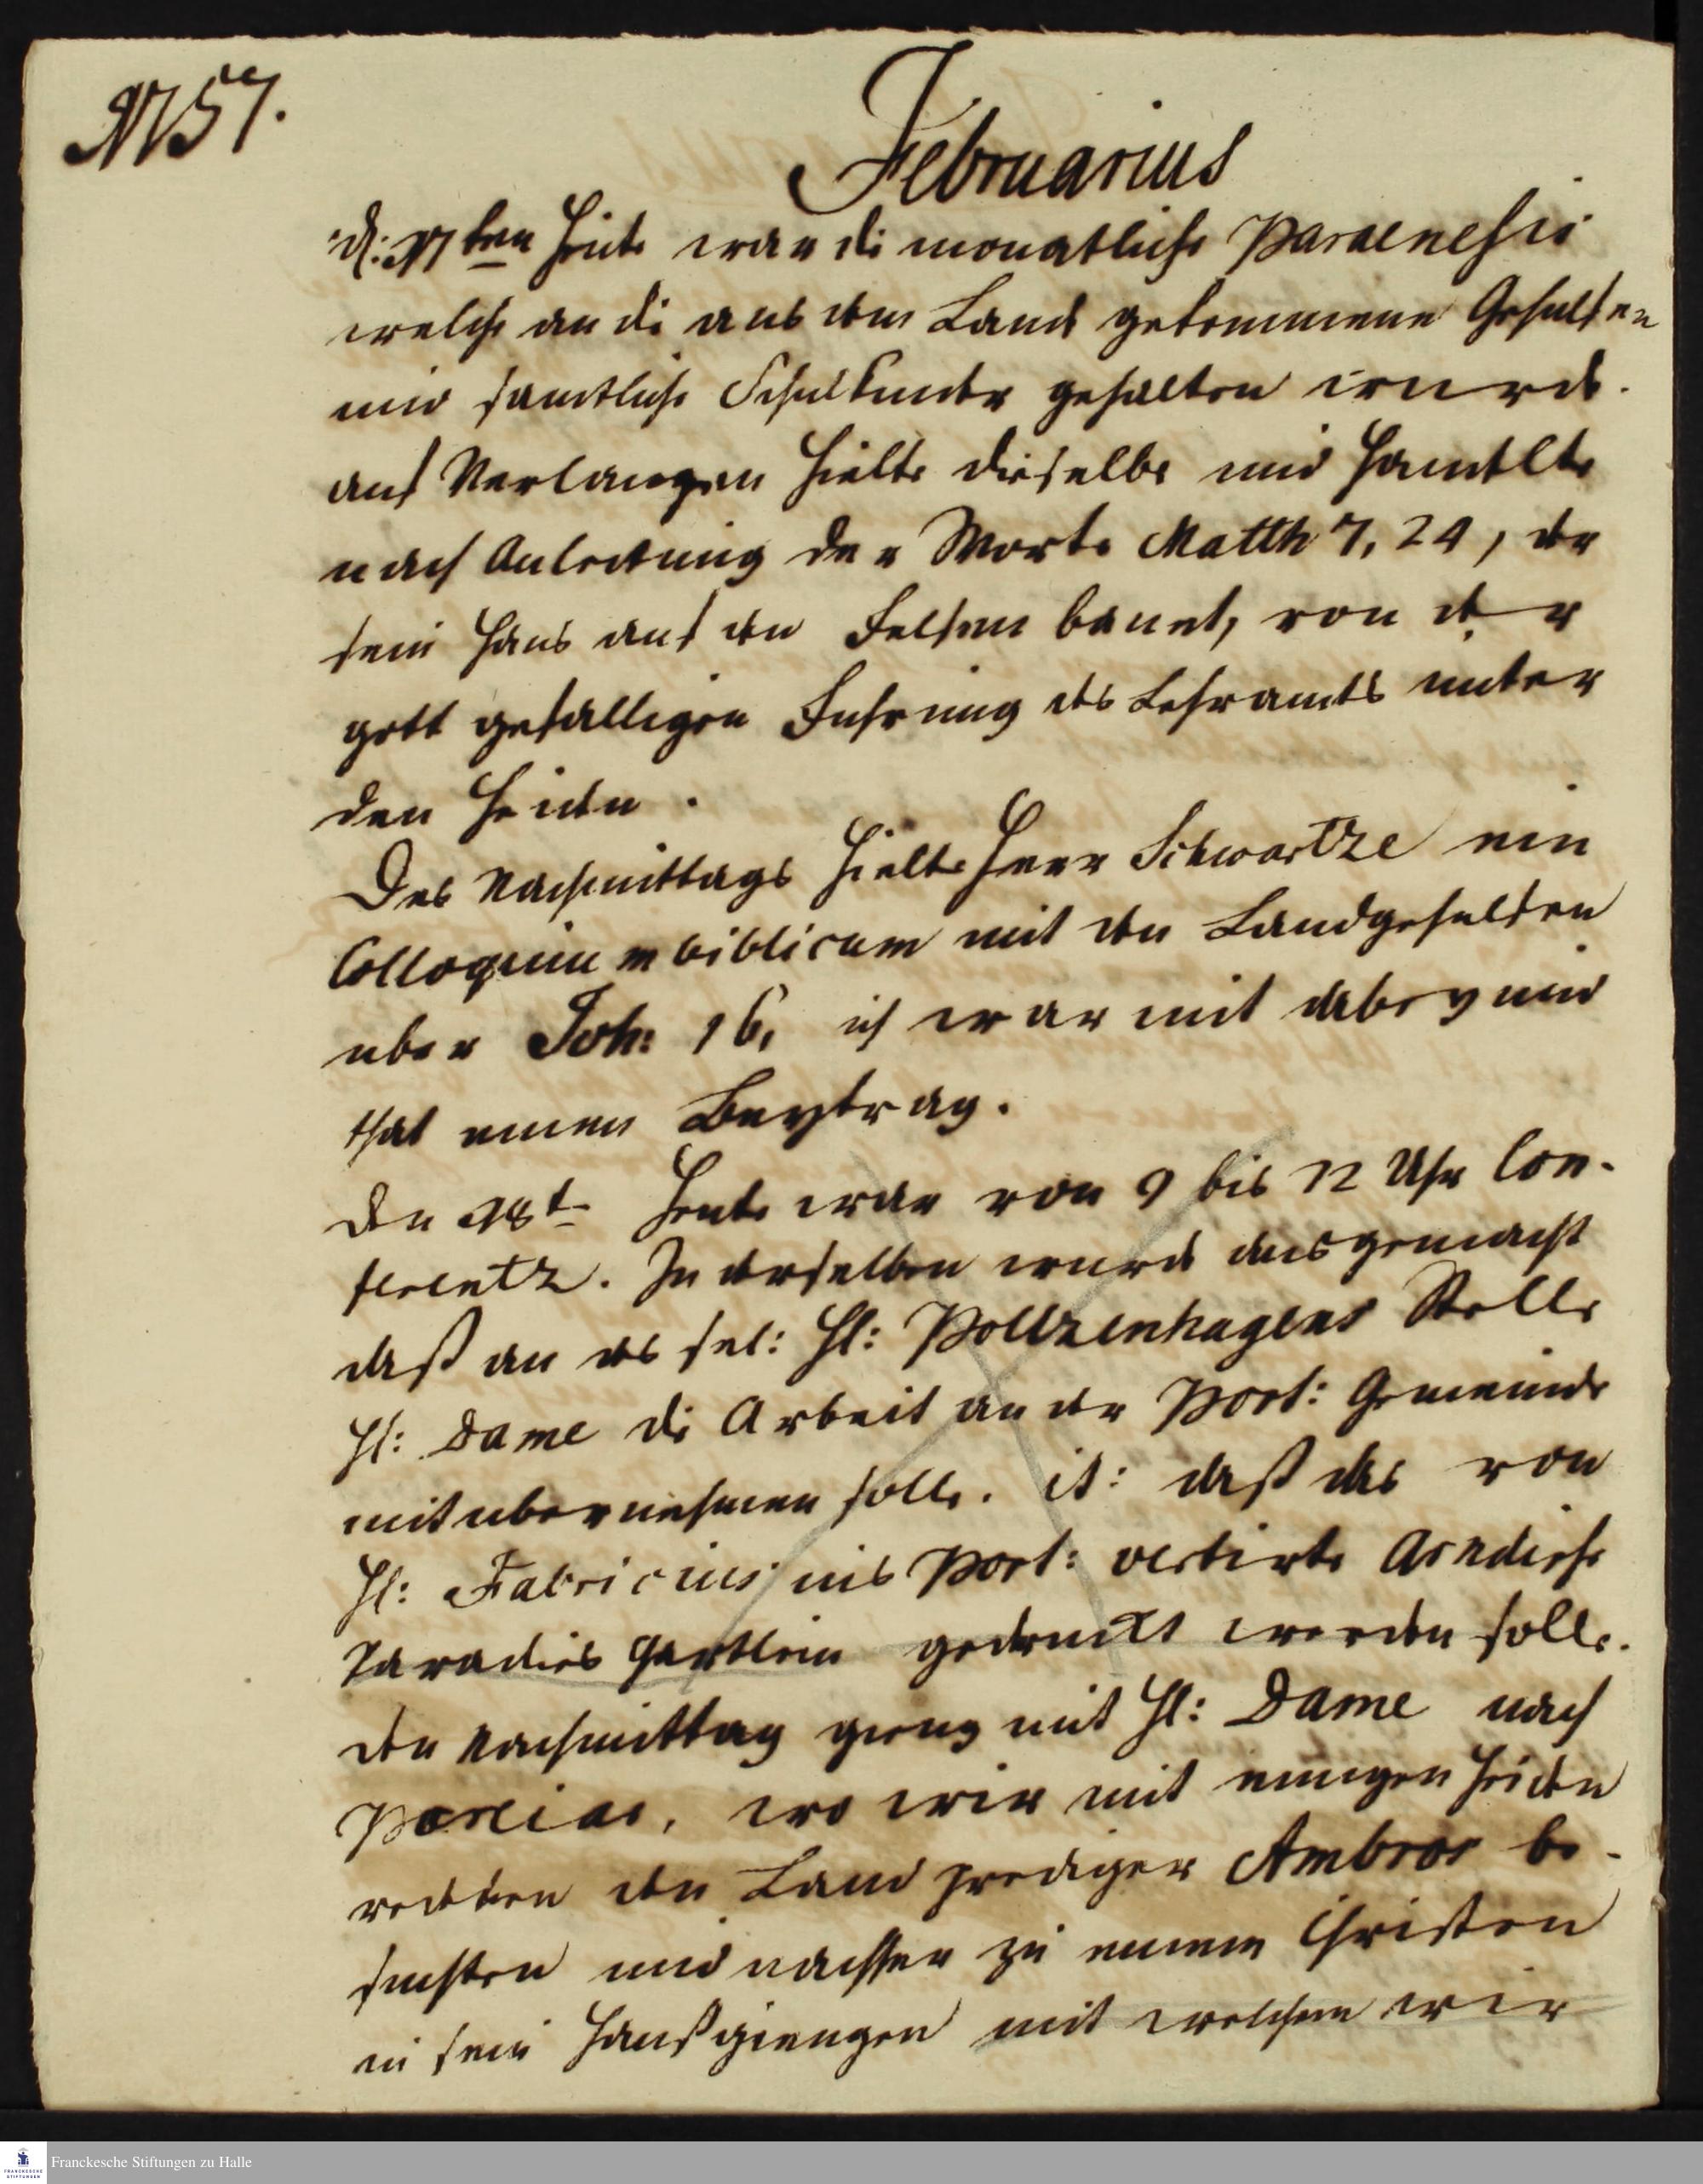 1757.
Februarius
d: 17ten Heute war die monatliche Paraenesis
welche an die aus dem Land gekommene Gehülfen
und samtliche Schulkinder gehalten wurde.
auf Verlangen hielte dieselbe und handelte
nach Anleitung der Worte Matth 7, 24, der
sein Haus auf den Felsen bauet, von der
gott gefälligen Fuhrung des Lehramts unter
den Heiden.
Des Nachmittags hielte Herr Schwartze ein
Colloquium biblicum mit den Landgehülfen
uber Joh: 16, ich war mit dabey und
that einen Beytrag.
Den 18t Heute war von 9 bis 12 Uhr Con-
ferentz. In derselben wurde ausgemacht
daß an des sel: H: Poltzenhagens Stelle
H: Dame die Arbeit an der Port: Gemeinde
mit ubernehmen solle. it: daß das von
H: Fabricius ins Port: vertirte Arndische
Paradies Gärtlein gedruckt werden solle.
den Nachmittag gieng mit H: Dame nach
Poreiar, wo wir mit einigen Heiden
redeten den Land prediger Ambros be-
suchten und nachher zu einem Christen
in sein Hauß giengen mit welchem wir
Franckesche Stiftungen zu Halle
FRANCKESCHE
STIFTUNGEN